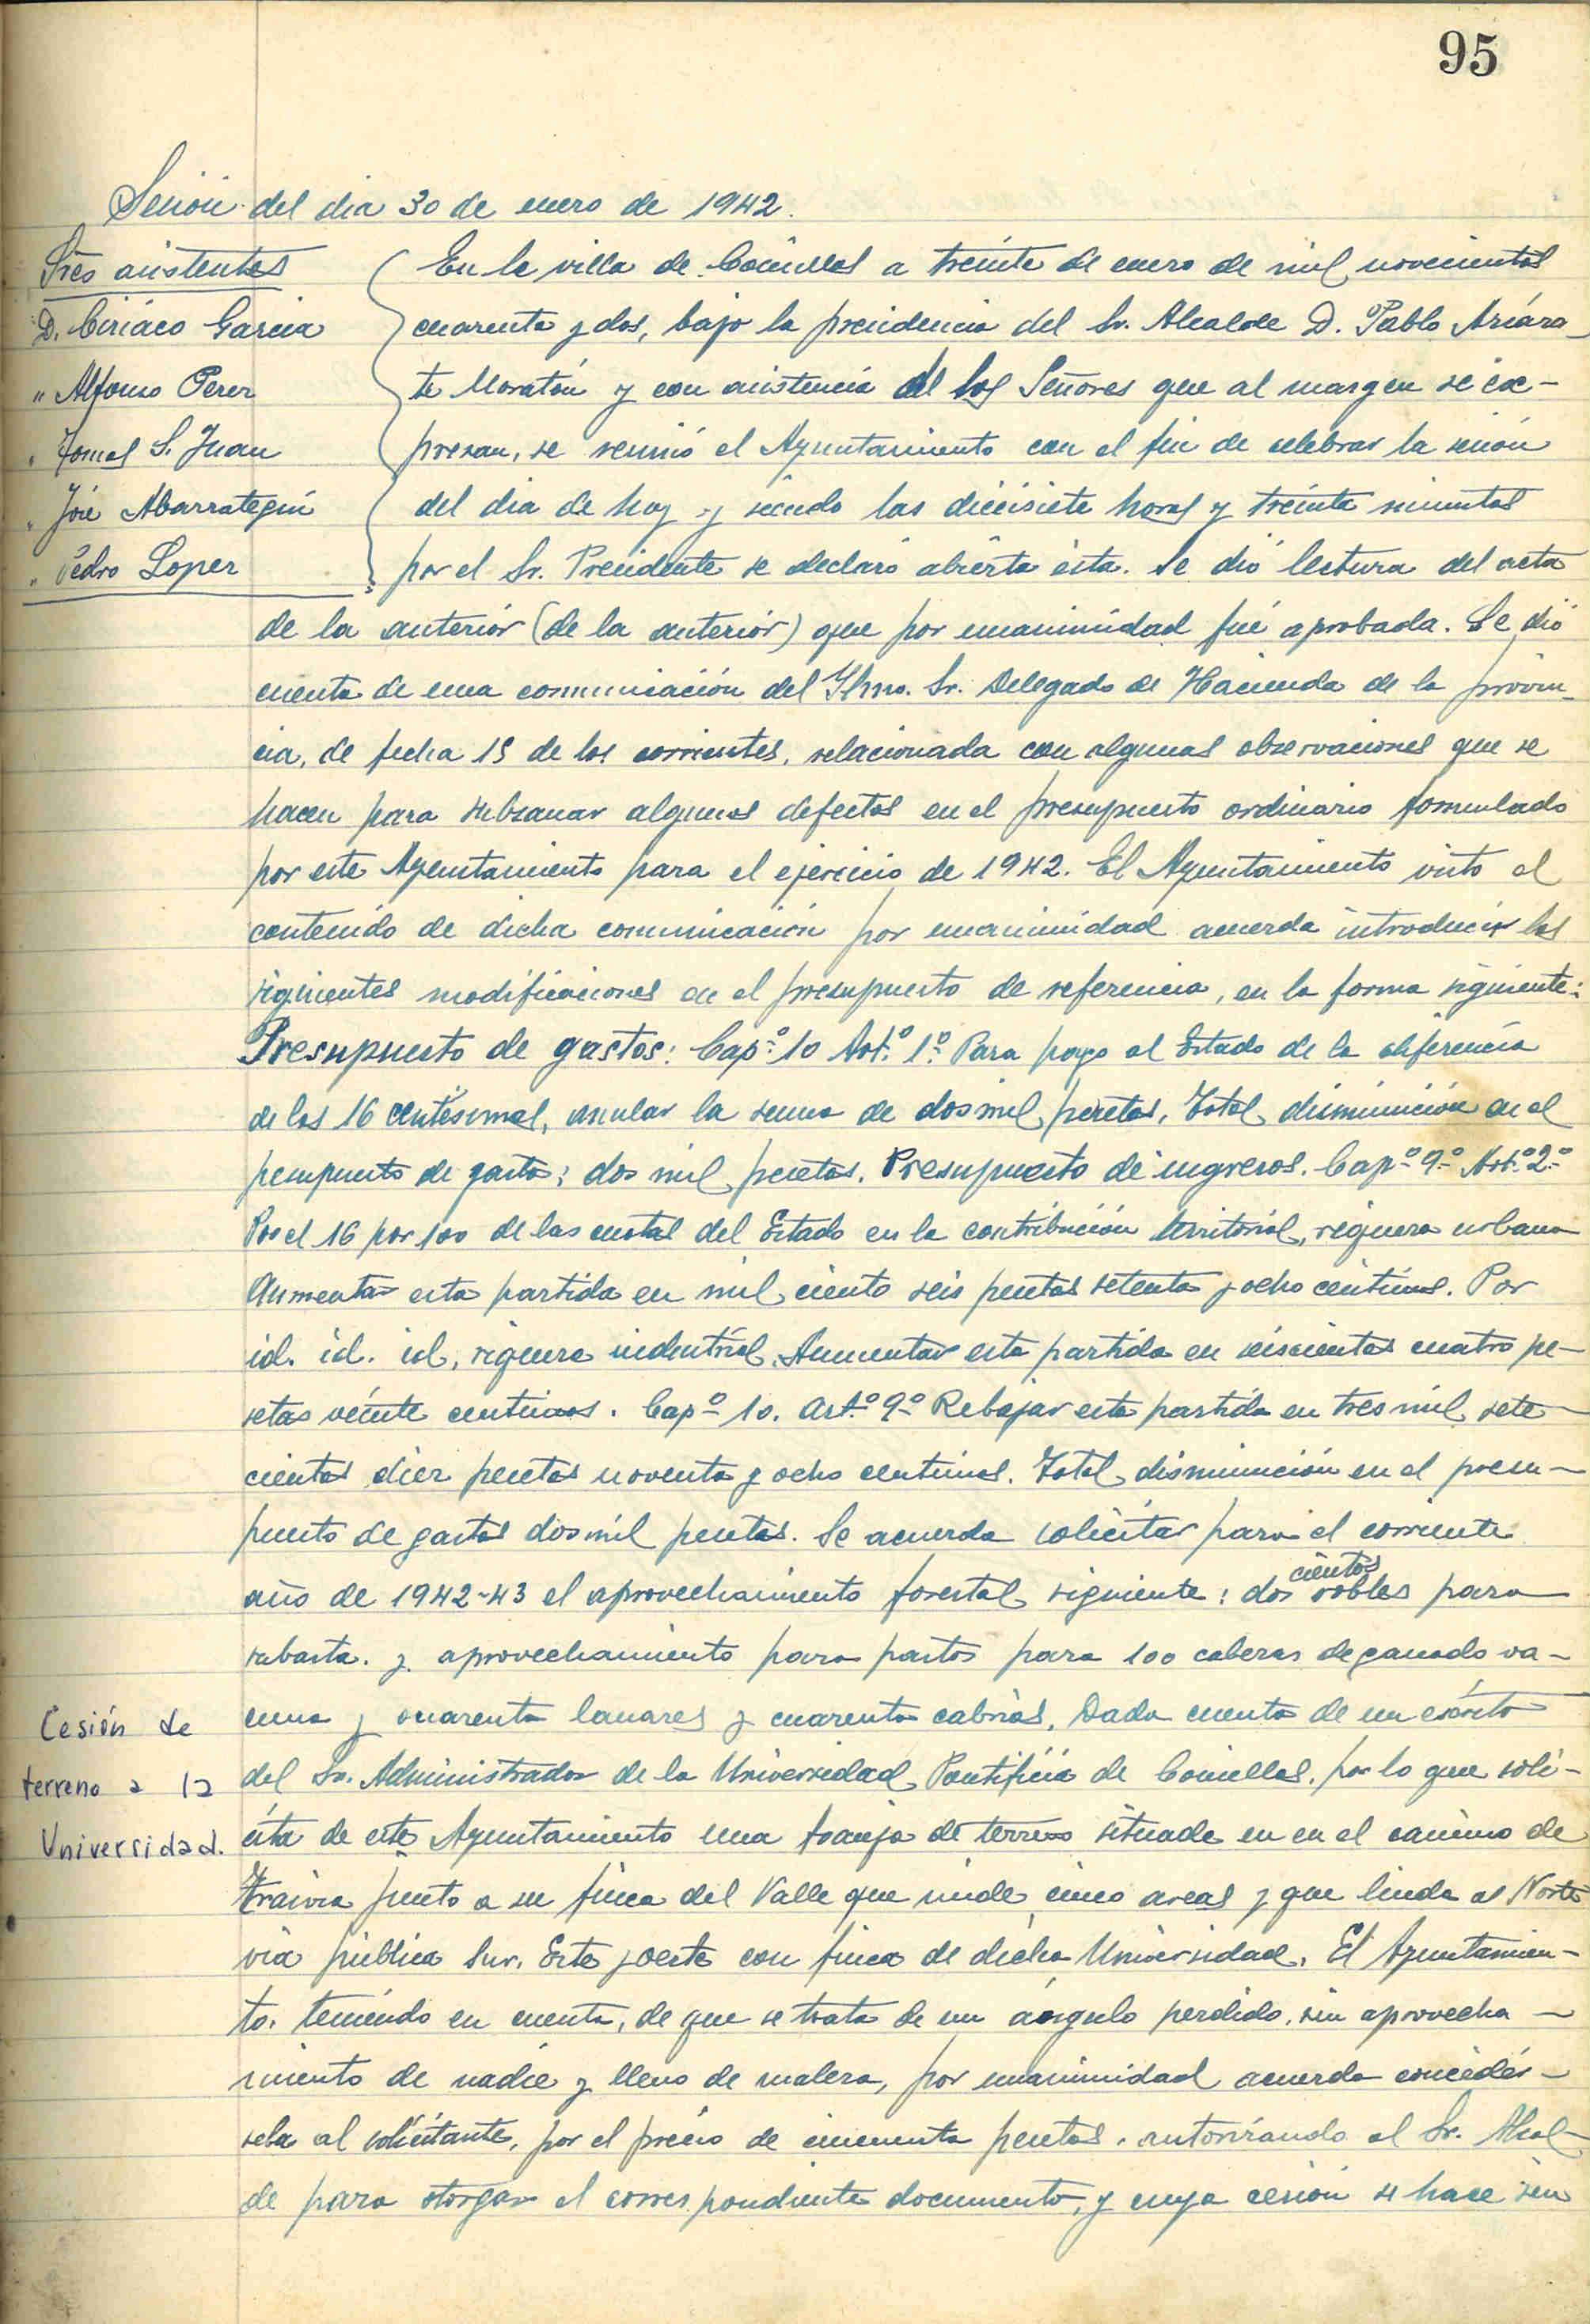 95
Sesión del dia 30 de enero de 1942.
Sres asistentes
D. Ciriáco Garcia
" Alfonso Perez
" Tomas S. Juan
" José Abarrategui
" Pedro Lopez
En la villa de Comillas a treinta de enero de mil novecientos
cuarenta y dos, bajo la presidencia del Sr. Alcalde D. Pablo Azcára-
te Moratón y con asistencia de los Señores que al margen se ex-
presan, se reunió el Ayuntamiento con el fin de celebrar la sesión
del dia de hoy y siendo las diecisiete horas y treinta minutos
por el Sr. Presidente se declaró abierta ésta. Se dió lectura del acta
de la anterior (de la anterior) que por unanimidad fué aprobada. Se dió
cuenta de una comunicación del Ylmo. Sr. Delegado de Hacienda de la provin-
cia, de fecha 15 de los corrientes, relacionada con algunas observaciones que se
hacen para subsanar algunos defectos en el presupuesto ordinario formulado
por este Ayuntamiento para el ejercicio de 1942. El Ayuntamiento visto el
contenido de dicha comunicación por unanimidad acuerda introducir las
siguientes modificaciones en el presupuesto de referencia, en la forma siguiente:
Presupuesto de gastos: Cap.º 10 Art.º 1º Para pago al Estado de la diferencia
de las 16 centésimas, anular la suma de dos mil pesetas, Total disminución en el
pesupuesto de gasto; dos mil pesetas. Presupuesto de ingresos. Cap.º 9.º Art.º 2.º
Por el 16 por 100 de las cuotas del Estado en la contribución territorial, riqueza urbana
Aumentar esta partida en mil ciento seis pesetas setenta y ocho centimos. Por
id. id. id, riqueza industrial, Aumentar esta partida en seiscientas cuatro pe-
setas veinte centimos. Cap.º 10. Art.º 9.º Rebajar esta partida en tres mil sete-
cientas diez pesetas noventa y ocho centimos. Total disminución en el presu-
puesto de gastos dos mil pesetas. Se acuerda solicitar para el corriente
año de 1942-43 el aprovechamiento forestal siguiente: dos cientos robles para
subasta. y aprovechamiento para pastos para 100 cabezas de ganado va-
cuno y cuarenta lanares y cuarenta cabrias. Dada cuenta de un escrito
Cesión de
terreno a la
Universidad.
del Sr. Administrador de la Universidad Pontificia de Comillas, por lo que soli-
cita de este Ayuntamiento una franja de terreno situada en en el camino de
Trasvia junto a su finca del Valle que mide cinco areas y que linda al Norte
via pública Sur, Este y oeste con finca de dicha Universidad. El Ayuntamien-
to, teniendo en cuenta, de que se trata de un ángulo perdido, sin aprovecha-
miento de nadie y lleno de maleza, por unanimidad acuerda concedér-
sela al solicitante, por el precio de cincuenta pesetas, autorizando al Sr. Alcal-
de para otorgar el correspondiente documento, y cuya cesión se hace sin